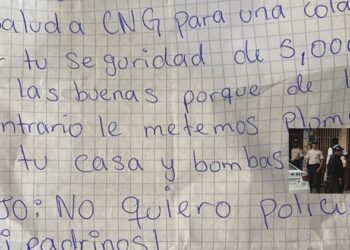 aluda CNG Para una cola
tu seguridad de 5,000
las buenas porque de l
ntrario le metemos Plom
tu casa y bombas
JO: NO quiero Polic
i padrinos!